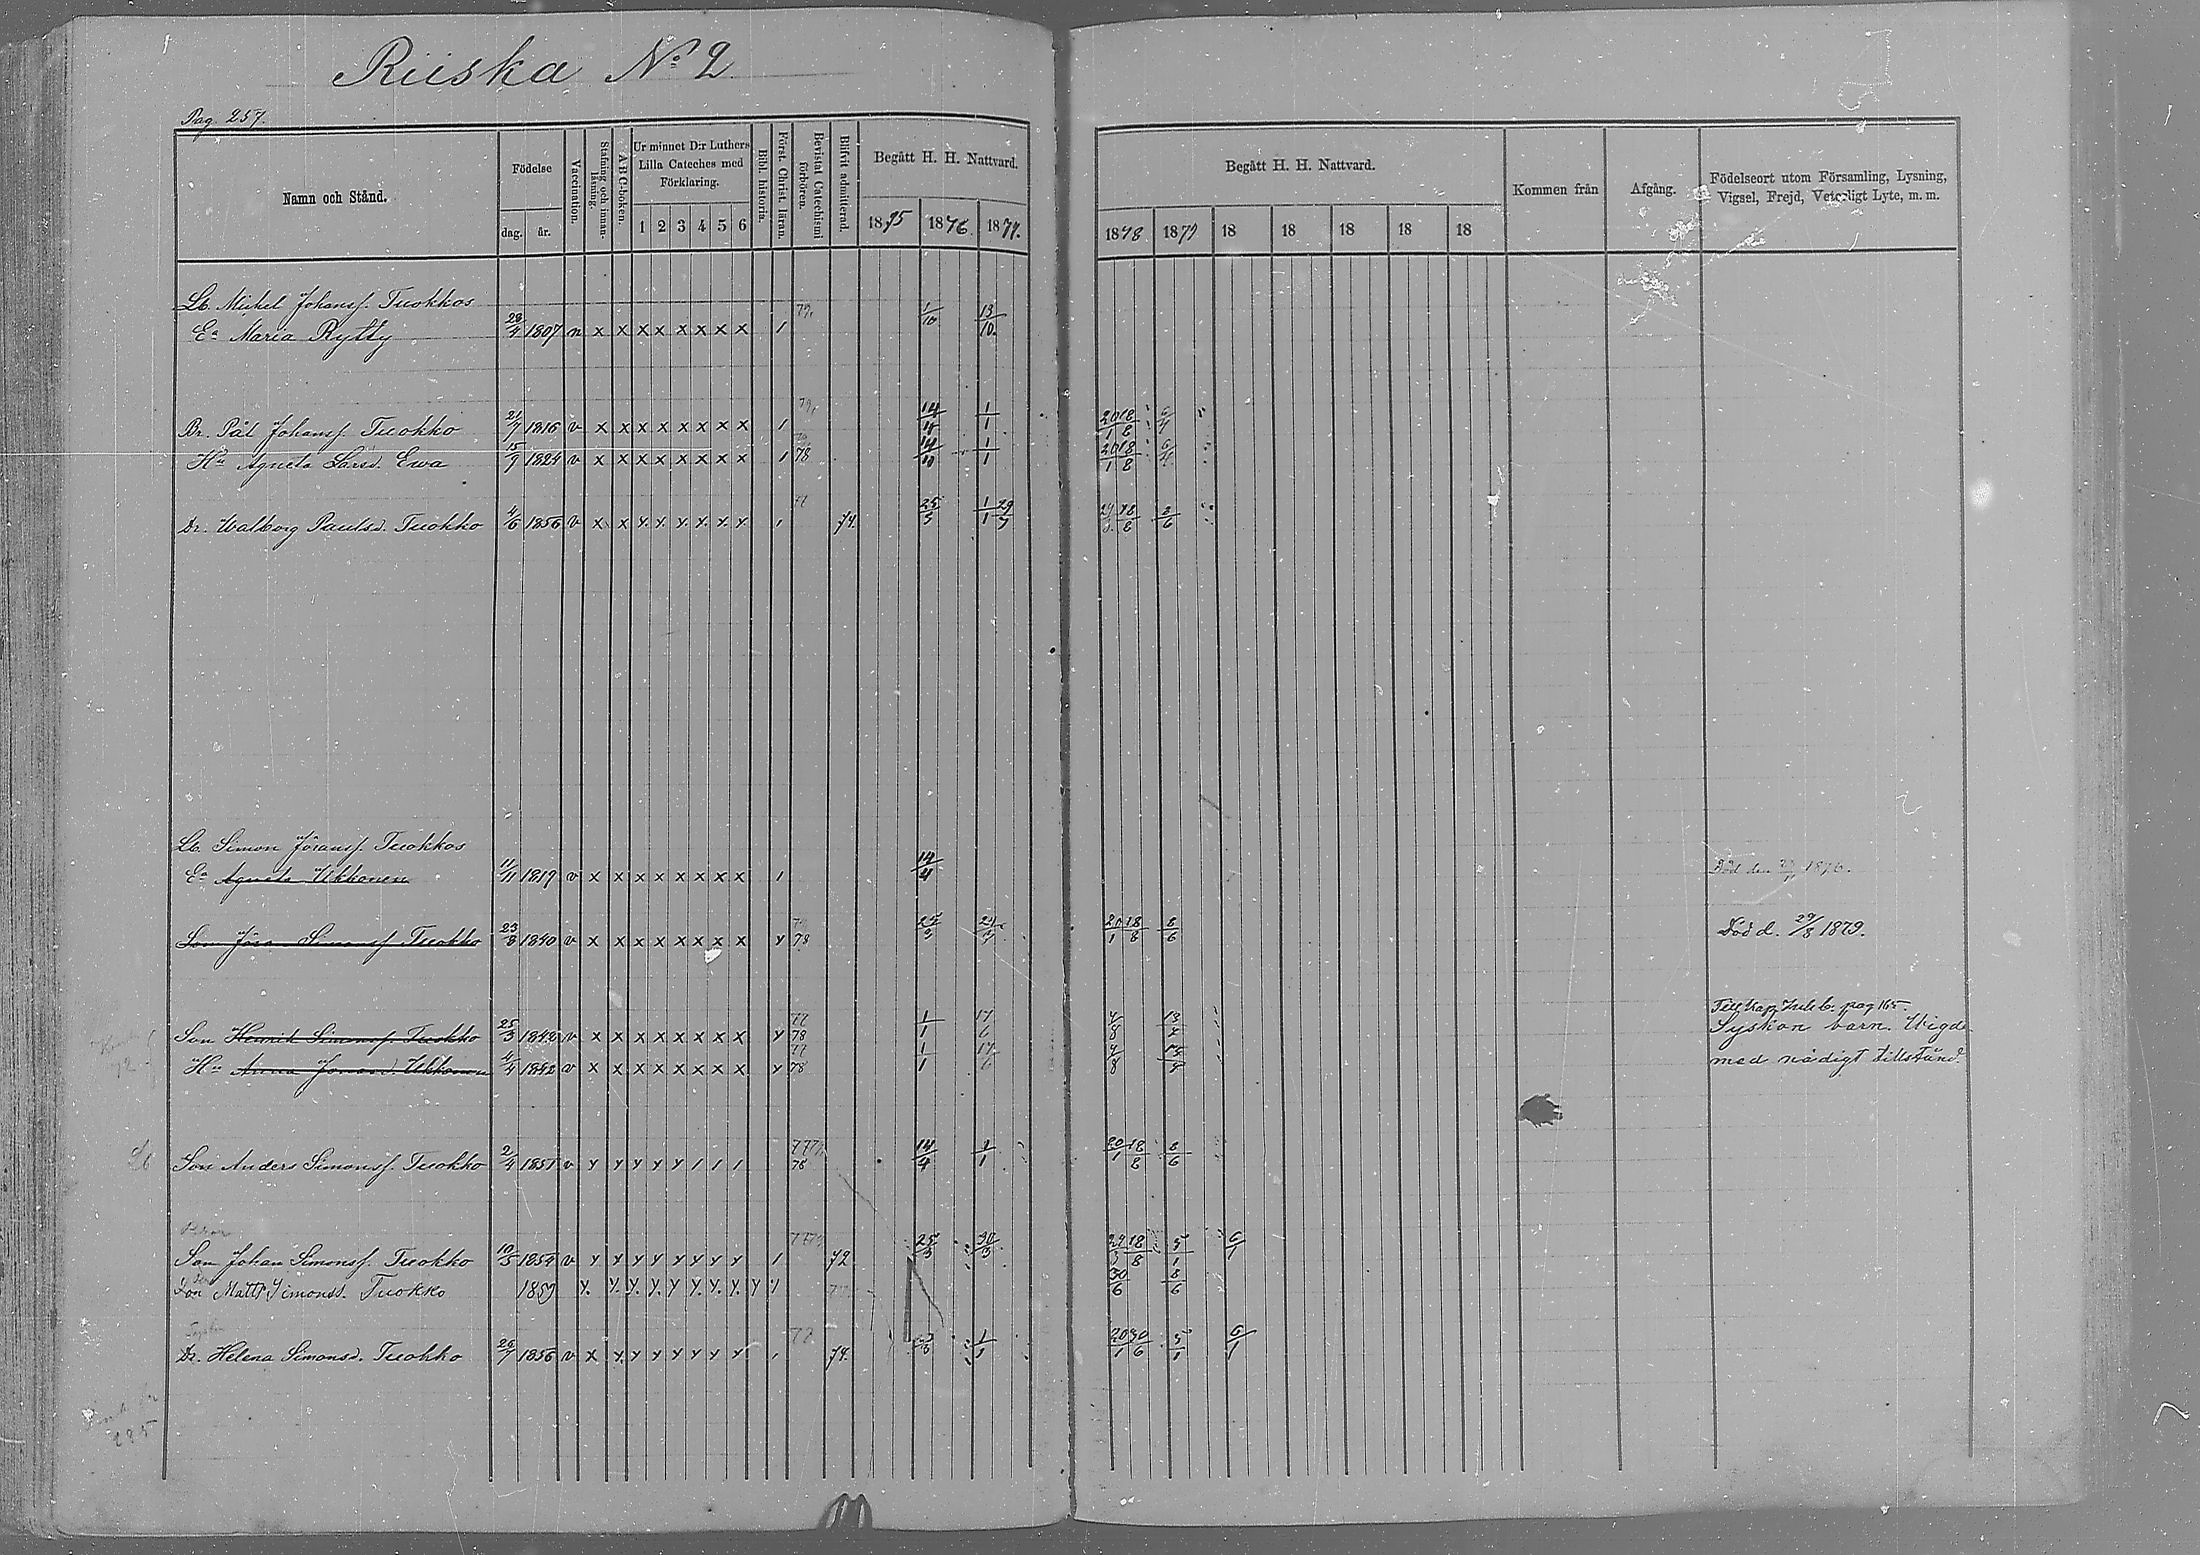 Riiska No 2
Pag. 257.
Namn och Stånd.
Födelse
dag. år.
Vaccination.
Stafning och innanläsning.
A B C-boken.
Ur minnet D:r Luthers Lilla Cateches med Förklaring.
1 2 3 4 5 6
Bibl. historia.
Först. Christ. läran.
Bevistat Catechismi förhören.
Blifvit admitterad.
Begått H. H. Nattvard.
1875 1876. 1877.
Begått H. H. Nattvard.
1878 1879 18 18 18 18 18
Kommen från
Afgång.
Födelseort utom Församling, Lysning, Vigsel, Frejd, Veterligt Lyte, m. m.
Lb. Mickel Johanss. Tuokkos
Ea Maria Rytty 23/4 1807 n x x x x x x x x 1 1/10 13/10.
Br. Pål Johanss. Tuokko 21/7 1816 v x x x x x x x x 1 14/4 1/1 20/1 18/8 6/4
Hu Agneta Larsd. Ewa 15/9 1824 v x x x x x x x x 1 78 14/10 1/1 20/1 18/8 6/4
Dr. Walborg Paulsd. Tuokko 4/6 1856 v x x y. y y y. y y 1 74. 25/3 1/1 29/3 18/8 8/6
Lb. Simon Jöranss. Tuokkos
Ea Agneta Ukkonen 11/11 1819 v x x x x x x x x 1 14/4 Död den 1876.
Son Jöran Simonss. Tuokko 23/8 1840 v x x x x x x x x y 78 25/3 20/1 18/8 8/6 Död d. 29/8 1879.
Till Kapp. pag 165
Son Henrik Simonss. Tuokko 25/3 1842 v x x x x x x x x y 77 78 1/1 17/6 4/8 13/4 Syskon barn. Wigde
Hu Anna Jönasd. Ukkonen 4/4 1842 v x x x x x x x x y 77 78 1/1 17/6 4/8 med nådigt tillstånd
Lb Son Anders Simonss. Tuokko 2/4 1851 v y y y y y 1 1 1 78 14/4 1/1 20/1 18/8 8/6
Son Johan Simonss. Tuokko 10/5 1854 v y y y y y y y y 1 72 25/3 30/3 18/8 5/1 6/1
Son Matts Simonss. Tuokko 1859 y. y. y. y. y y. y. y. y 1 30/6 8/6
Dr. Helena Simonsd. Tuokko 26/7 1856 v x y. y y y y y y 1 74. 1/1 20/1 30/6 5/1 6/1